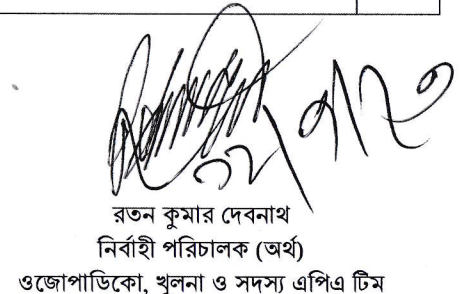 রতন কুমার দেবনাথ
নির্বাহী পরিচালক (অর্থ)
ওজোপাডিকো, খুলনা ও সদস্য এপিএ টিম